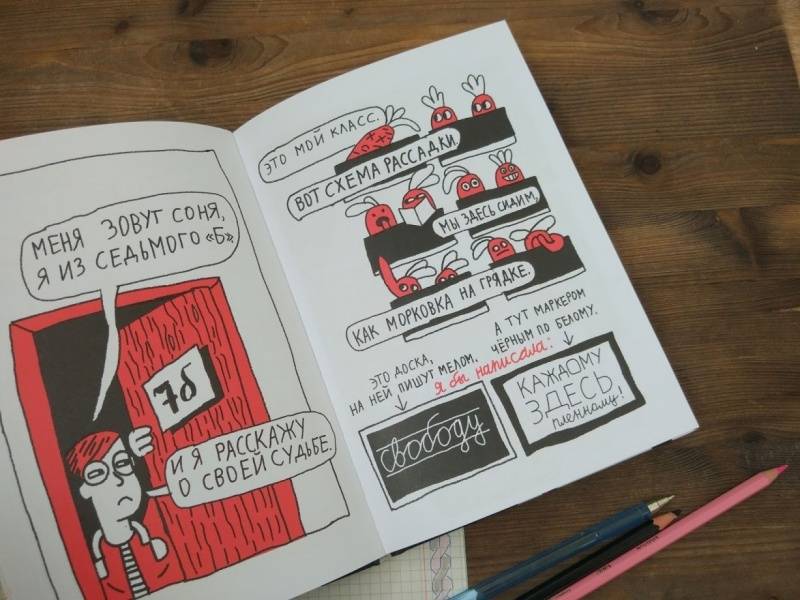 МЕНЯ ЗОВУТ СОНЯ,
Я ИЗ СЕДЬМОГО «Б»
7б
И Я РАССКАЖУ
О СВОЕЙ СУДЬБЕ.
ЭТО МОЙ КЛАСС.
ВОТ СХЕМА РАССАДКИ.
МЫ ЗДЕСЬ СИДИМ,
КАК МОРКОВКА НА ГРЯДКЕ.
ЭТО ДОСКА,
НА НЕЙ ПИШУТ МЕЛОМ.
А ТУТ МАРКЕРОМ
ЧЁРНЫМ ПО БЕЛОМУ.
я бы написала:
свободу
КАЖДОМУ
ЗДЕСЬ
пленному!